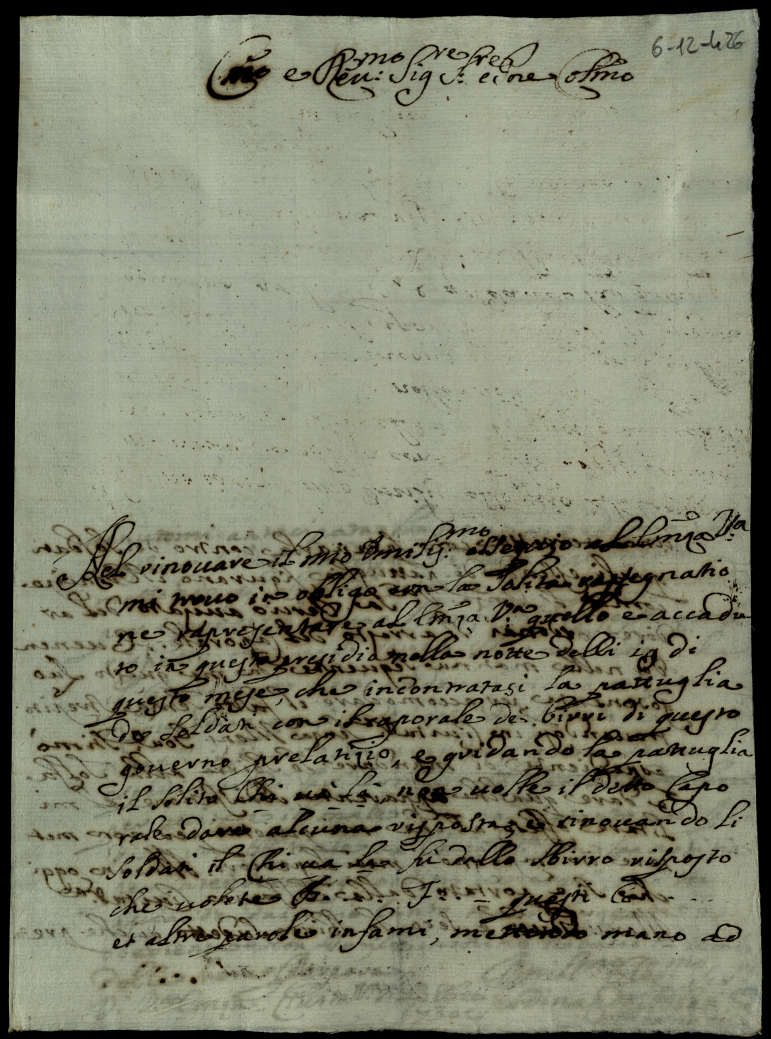 6-12-426
Emo e Rev:mo Sig:re e Pre Colmo
Nel rinouare il mio Umilis:mo ossequio all'Emza Vra
mi trouo in obligo con la solita rassegnatio
ne rapresentare all'Emza Va quello è accadu
to in questo presidio nella notte delli 19 di
questo mese, che incontratasi la pattuglia
de soldati con il caporale de birri di questo
governo prelatizio, e gridando la pattuglia
il solito Chi uà là non volle il detto Capo
rale dare alcuna risposta, e rinouando li
soldati il Chi uà là fù dallo sbirro risposto
che uolete B. F. questi C...
et altre parole infami, mettendo mano ad